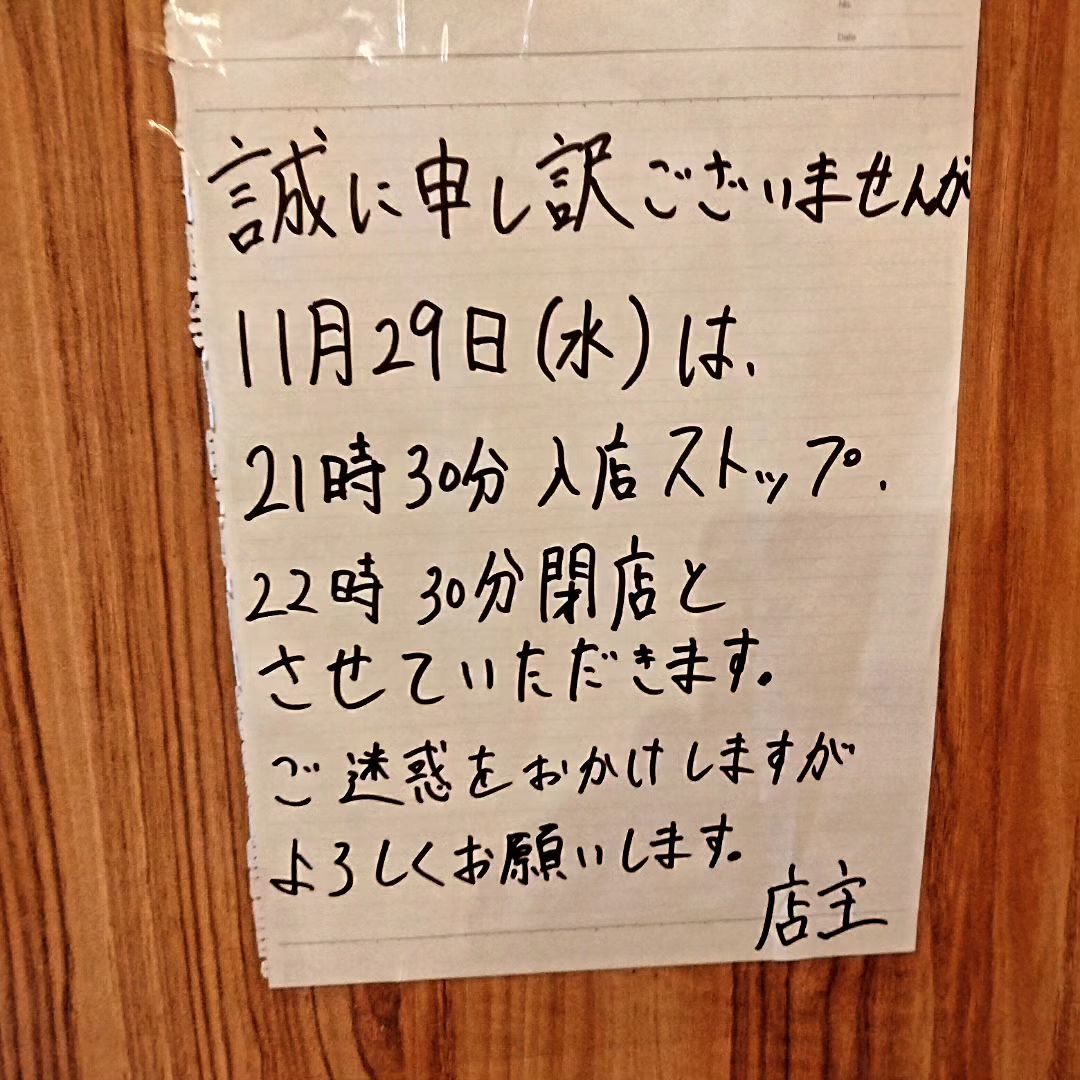 No.
Date
誠に申し訳ございませんが
11月29日(水)は、
21時30分入店ストップ、
22時30分閉店と
させていただきます。
ご迷惑をおかけしますが
よろしくお願いします。
店主